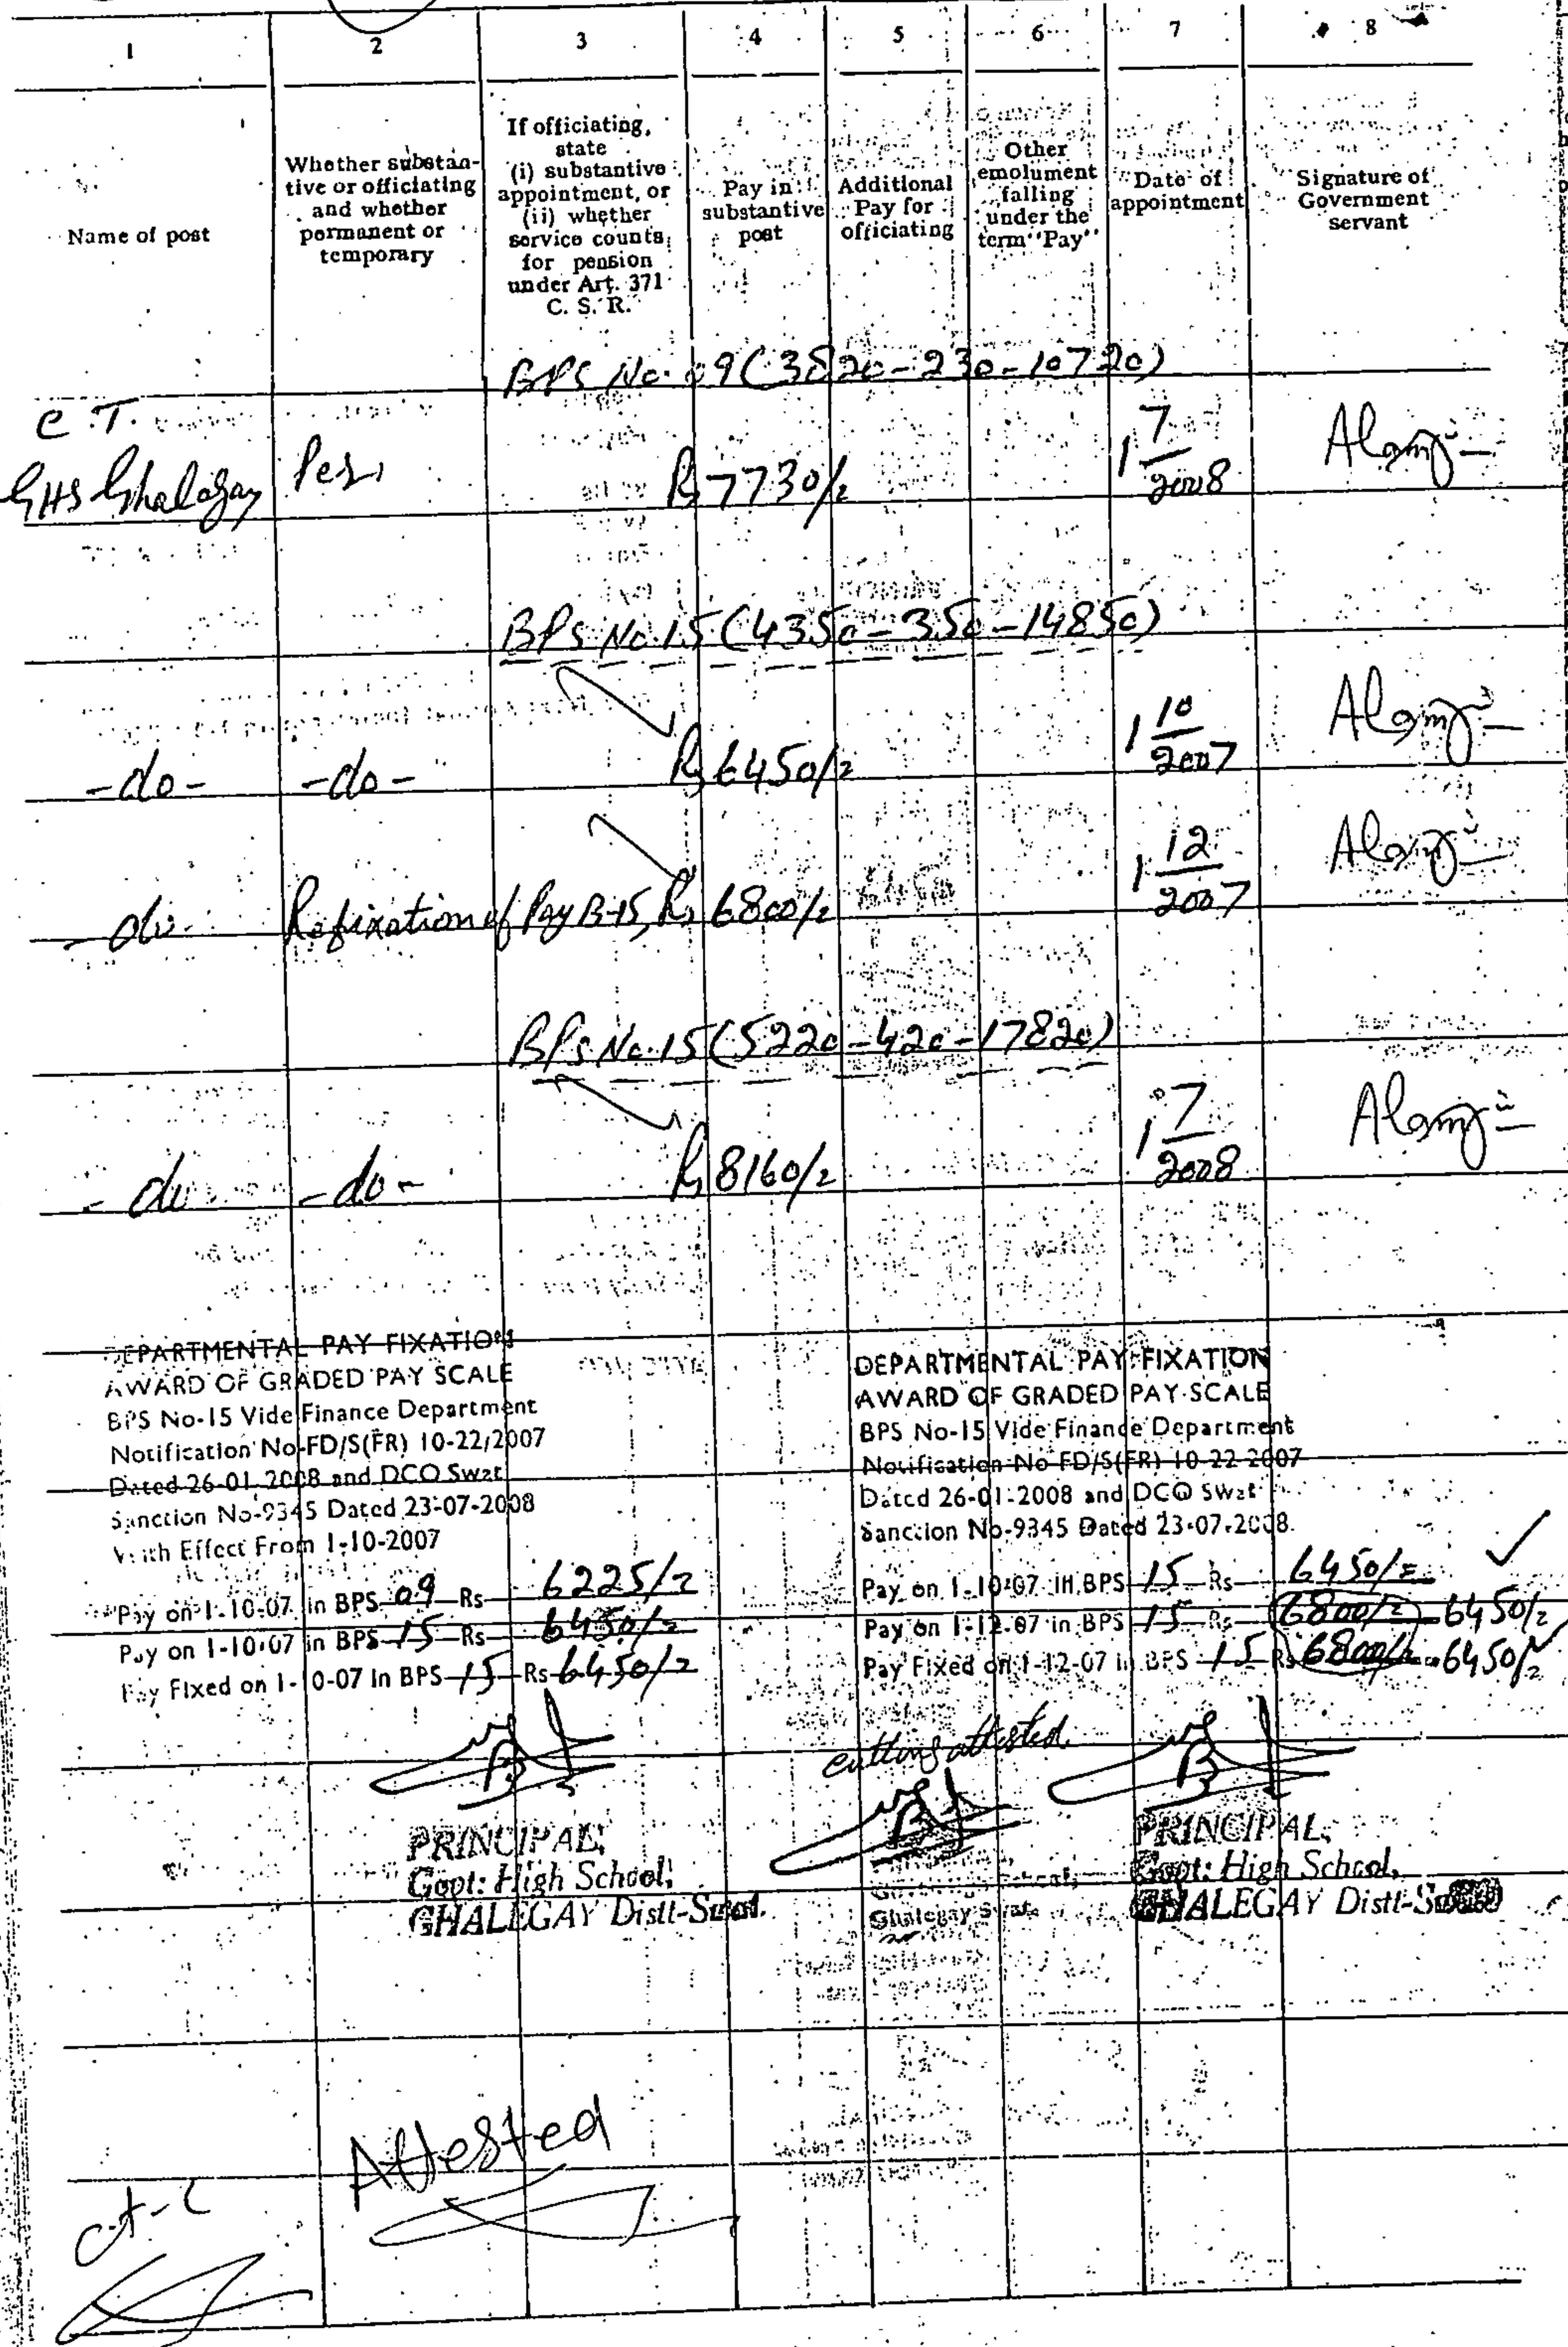 1 2 3 4 5 6 7 8
Name of post
Whether substan-
tive or officiating
and whether
permanent or
temporary
If officiating,
state
(i) substantive
appointment, or
(ii) whether
service counts
for pension
under Art. 371
C. S. R.
Pay in
substantive
post
Additional
Pay for
officiating
Other
emolument
falling
under the
term "Pay"
Date of
appointment
Signature of
Government
servant
BPS No. 09 (3820-230-10720)
C.T.
GHS Ghalegay Per, Rs 7730/= 1 7/2008
BPS No. 15 (4350-350-14850)
-do- -do- Rs 6450/= 1 10/2007
-do- Refixation of Pay B-15, Rs 6800/= 1 12/2007
BPS No. 15 (5220-420-17820)
-do- -do- Rs 8160/= 1 7/2008
DEPARTMENTAL PAY FIXATION
AWARD OF GRADED PAY SCALE
BPS No-15 Vide Finance Department
Notification No-FD/S(FR) 10-22/2007
Dated 26-01-2008 and DCO Swat
Sanction No-9345 Dated 23-07-2008
With Effect From 1-10-2007
Pay on 1-10-07 in BPS 09 Rs 6225/=
Pay on 1-10-07 in BPS 15 Rs 6450/=
Pay Fixed on 1-10-07 in BPS 15 Rs 6450/=
PRINCIPAL,
Govt: High School,
GHALEGAY Distt-Swat.
DEPARTMENTAL PAY FIXATION
AWARD OF GRADED PAY SCALE
BPS No-15 Vide Finance Department
Notification No FD/S(FR) 10-22-2007
Dated 26-01-2008 and DCO Swat
Sanction No-9345 Dated 23-07-2008.
Pay on 1-10-07 in BPS 15 Rs 6450/=
Pay on 1-12-07 in BPS 15 Rs 6800/= 6450/=
Pay Fixed on 1-12-07 in BPS 15 Rs 6800/= 6450/=
cutting attested
Ghalegay Swat.
PRINCIPAL,
Govt: High School,
GHALEGAY Distt-Swat
Attested